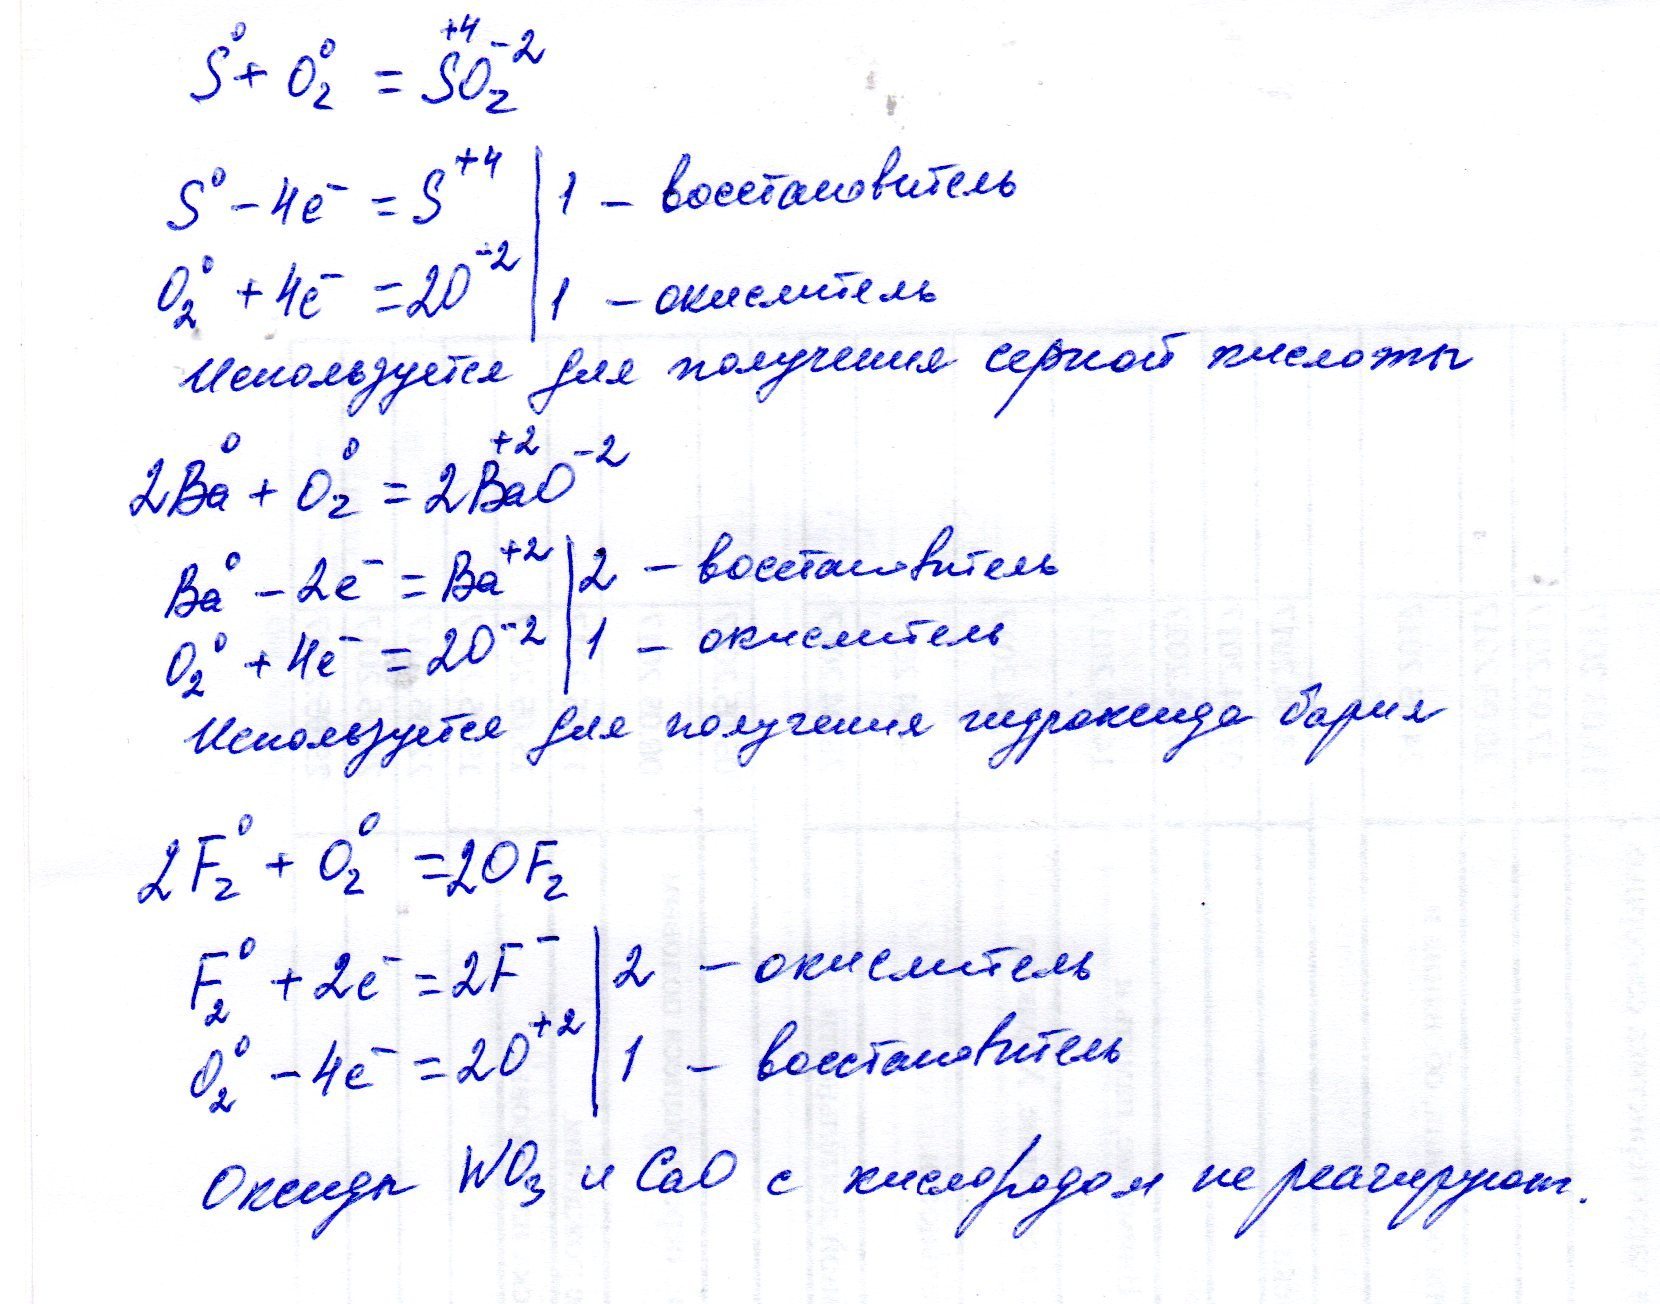 S⁰ + O₂⁰ = S⁺⁴O₂⁻²
S⁰ – 4e⁻ = S⁺⁴ | 1 – восстановитель
O₂⁰ + 4e⁻ = 2O⁻² | 1 – окислитель
Используется для получения серной кислоты
2Ba⁰ + O₂⁰ = 2Ba⁺²O⁻²
Ba⁰ – 2e⁻ = Ba⁺² | 2 – восстановитель
O₂⁰ + 4e⁻ = 2O⁻² | 1 – окислитель
Используется для получения гидроксида бария
2F₂⁰ + O₂⁰ = 2OF₂
F₂⁰ + 2e⁻ = 2F⁻ | 2 – окислитель
O₂⁰ – 4e⁻ = 2O⁺² | 1 – восстановитель
Оксиды WO₃ и CaO с кислородом не реагируют.